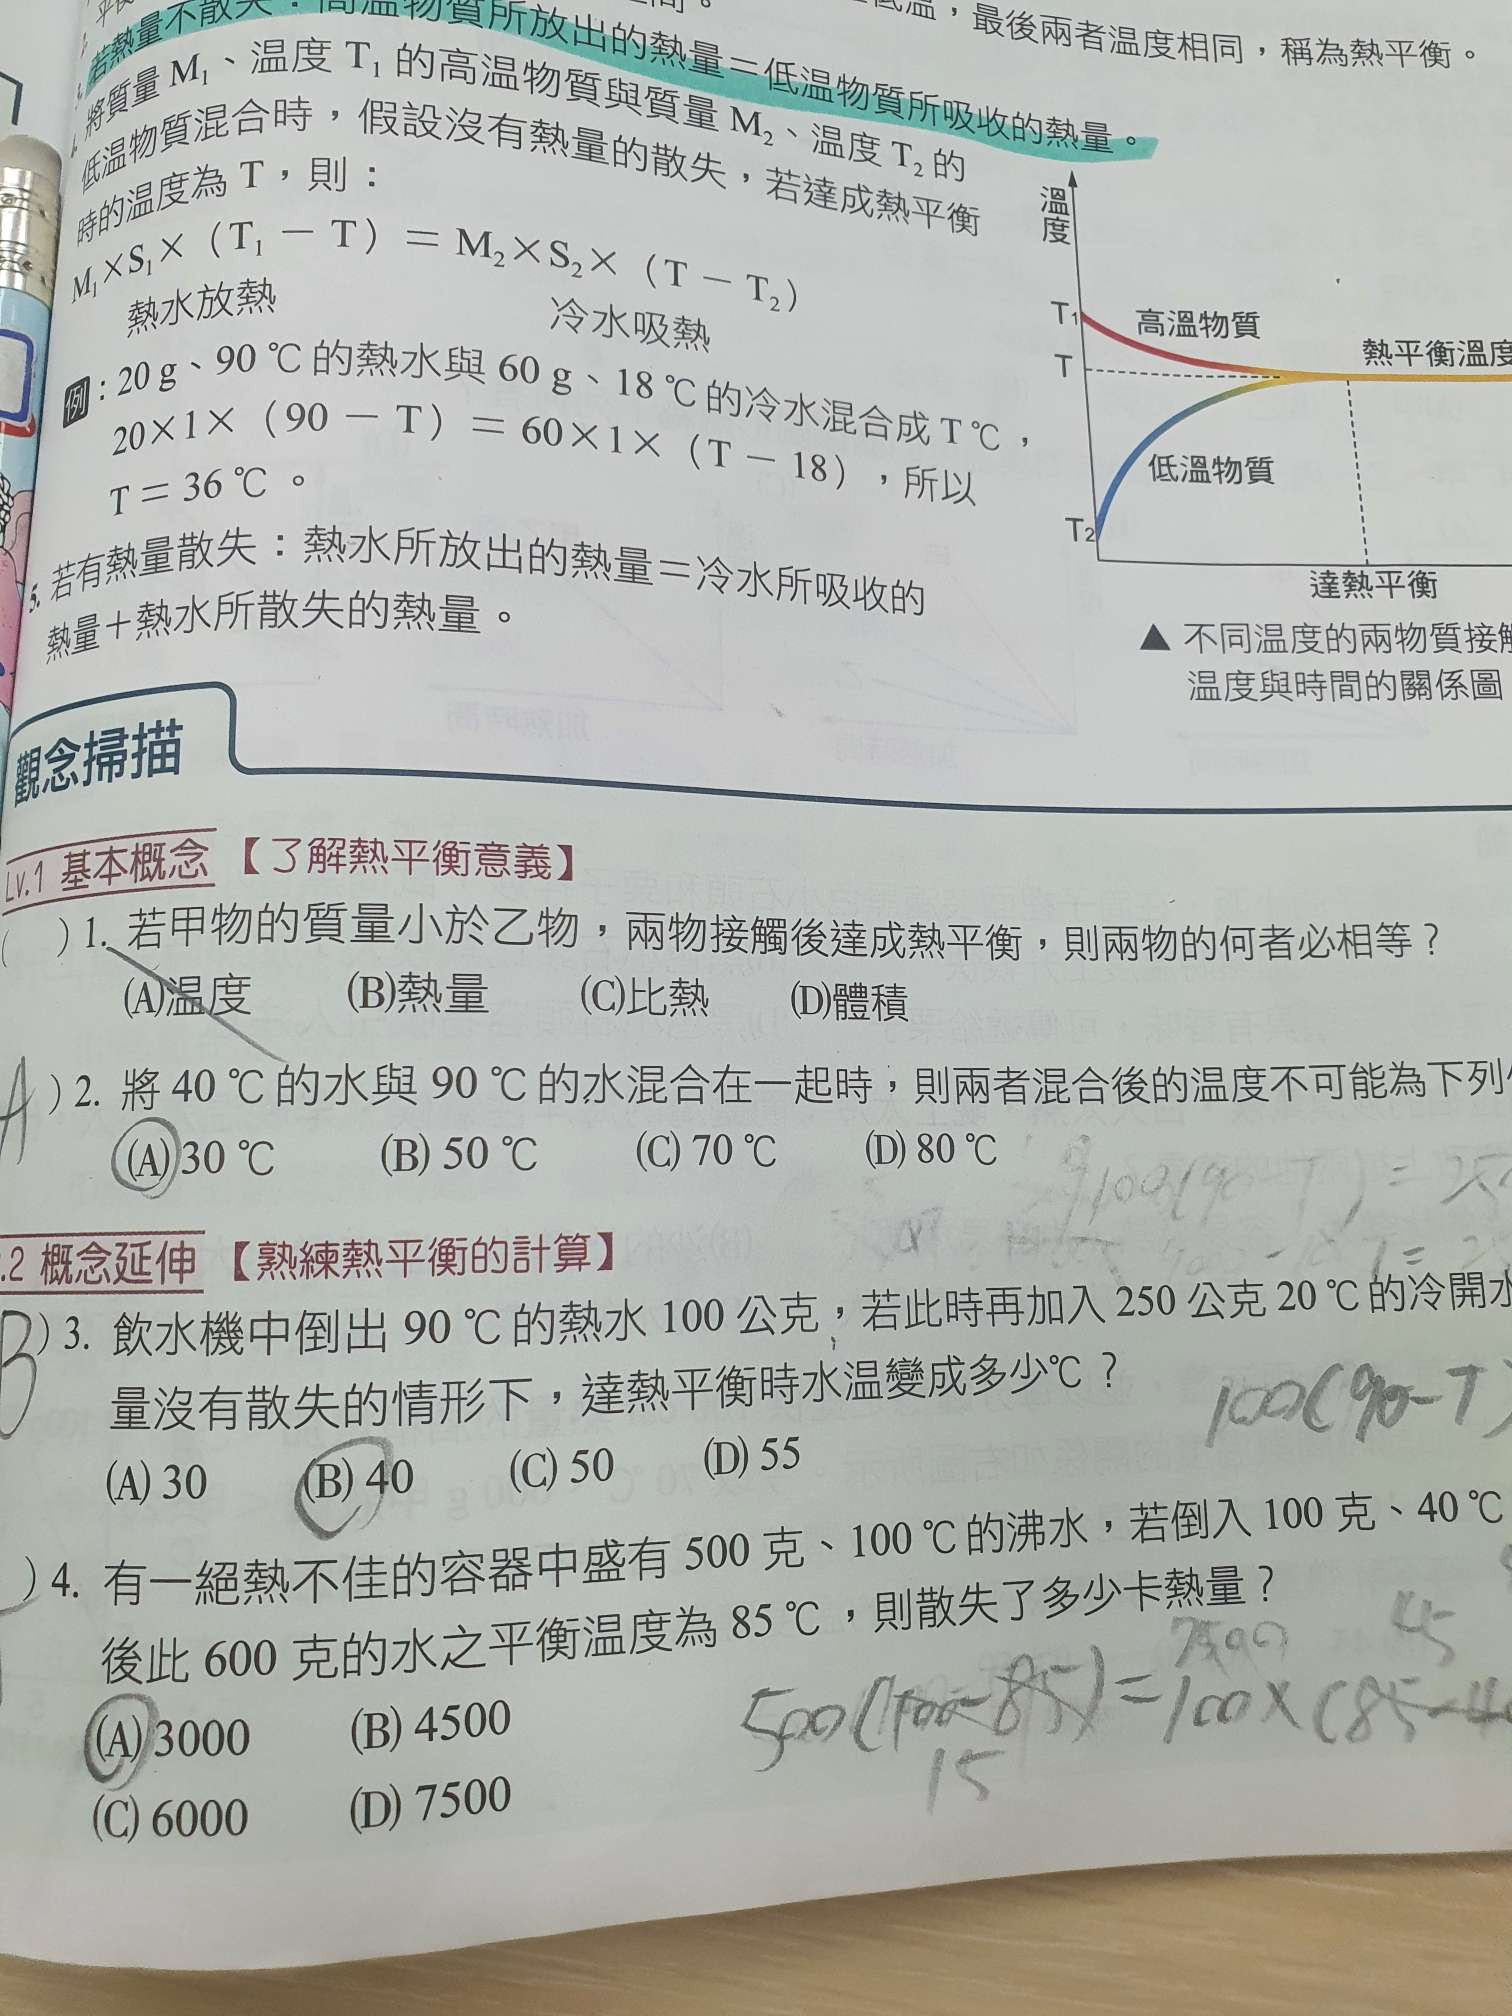 低溫，最後兩者溫度相同，稱為熱平衡。
3. 若熱量不散失：高溫物質所放出的熱量＝低溫物質所吸收的熱量。
將質量 M₁、溫度 T₁ 的高溫物質與質量 M₂、溫度 T₂ 的
低溫物質混合時，假設沒有熱量的散失，若達成熱平衡
時的溫度為 T，則：
M₁×S₁×（T₁－T）＝M₂×S₂×（T－T₂）
熱水放熱 冷水吸熱
例：20 g、90 ℃ 的熱水與 60 g、18 ℃ 的冷水混合成 T ℃，
20×1×（90－T）＝60×1×（T－18），所以
T＝36 ℃。
5. 若有熱量散失：熱水所放出的熱量＝冷水所吸收的
熱量＋熱水所散失的熱量。
溫度
T₁
高溫物質
T
熱平衡溫度
低溫物質
T₂
達熱平衡
▲ 不同溫度的兩物質接
溫度與時間的關係圖
觀念掃描
Lv.1 基本概念【了解熱平衡意義】
( ) 1. 若甲物的質量小於乙物，兩物接觸後達成熱平衡，則兩物的何者必相等？
(A)溫度 (B)熱量 (C)比熱 (D)體積
A ) 2. 將 40 ℃ 的水與 90 ℃ 的水混合在一起時，則兩者混合後的溫度不可能為下列
(A) 30 ℃ (B) 50 ℃ (C) 70 ℃ (D) 80 ℃
.2 概念延伸【熟練熱平衡的計算】
B ) 3. 飲水機中倒出 90 ℃ 的熱水 100 公克，若此時再加入 250 公克 20 ℃ 的冷開水
量沒有散失的情形下，達熱平衡時水溫變成多少℃？
100(90-T)
(A) 30 (B) 40 (C) 50 (D) 55
) 4. 有一絕熱不佳的容器中盛有 500 克、100 ℃ 的沸水，若倒入 100 克、40 ℃
後此 600 克的水之平衡溫度為 85 ℃，則散失了多少卡熱量？
7500 45
500(100-85)=100×(85-40
15
(A) 3000 (B) 4500
(C) 6000 (D) 7500